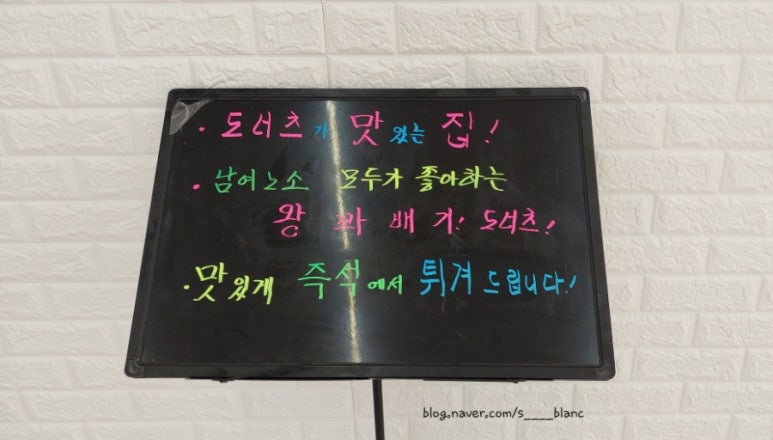 · 도너츠가 맛있는 집!
· 남여노소 모두가 좋아하는
왕 꽈배기! 도너츠!
· 맛있게 즉석에서 튀겨 드립니다!
blog.naver.com/s____blanc